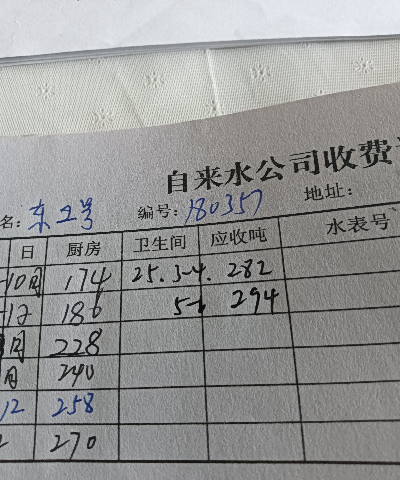 自来水公司收费
名: 东2号 编号: 180357 地址:
日 厨房 卫生间 应收吨 水表号
-10月 174 25.3-4. 282
186 5-6 294
月 228
月 240
12 258
2 270